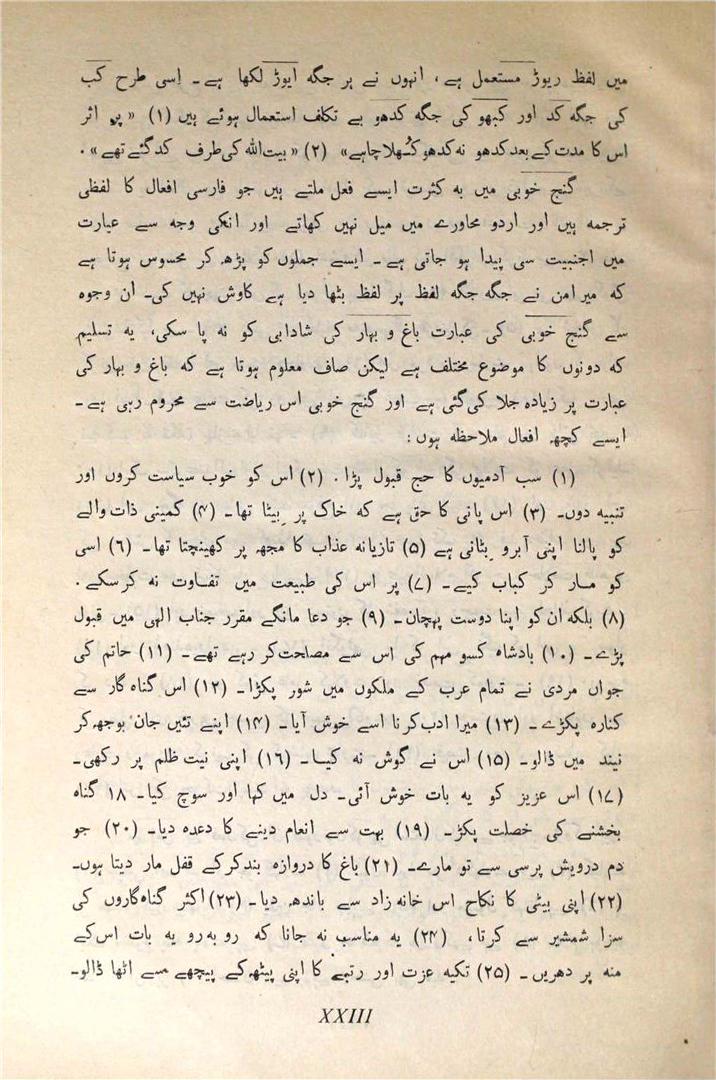 میں لفظ ریوڑ مستعمل ہے، انہوں نے ہر جگہ ایوڑ لکھا ہے۔ اِسی طرح کب
کی جگہ کد اور کبھو کی جگہ کدھو بے تکلف استعمال ہوئے ہیں (۱) «پر اثر
اس کا مدت کے بعد کدھو نہ کدھو کُھلا چاہے» (۲) «بیت اللہ کی طرف کد گئے تھے».
گنج خوبی میں بہ کثرت ایسے فعل ملتے ہیں جو فارسی افعال کا لفظی
ترجمہ ہیں اور اردو محاورے میں میل نہیں کھاتے اور انکی وجہ سے عبارت
میں اجنبیت سی پیدا ہو جاتی ہے۔ ایسے جملوں کو پڑھ کر محسوس ہوتا ہے
کہ میر امن نے جگہ جگہ لفظ پر لفظ بٹھا دیا ہے کاوش نہیں کی۔ ان وجوہ
سے گنج خوبی کی عبارت باغ و بہار کی شادابی کو نہ پا سکی، یہ تسلیم
کہ دونوں کا موضوع مختلف ہے لیکن صاف معلوم ہوتا ہے کہ باغ و بہار کی
عبارت پر زیادہ جلا کی گئی ہے اور گنج خوبی اس ریاضت سے محروم رہی ہے۔
ایسے کچھ افعال ملاحظہ ہوں:
(۱) سب آدمیوں کا حج قبول پڑا. (۲) اس کو خوب سیاست کروں اور
تنبیہ دوں۔ (۳) اس پانی کا حق ہے کہ خاک پر بِیٹا تھا۔ (۴) کمینی ذات والے
کو پالنا اپنی آبرو بِٹانی ہے (۵) تازیانہ عذاب کا مجھ پر کھینچتا تھا۔ (۶) اسی
کو مار کر کباب کیے۔ (۷) پر اس کی طبیعت میں تفاوت نہ کر سکے.
(۸) بلکہ ان کو اپنا دوست پہچان۔ (۹) جو دعا مانگے مقرر جناب الٰہی میں قبول
پڑے۔ (۱۰) بادشاہ کسو مہم کی اس سے مصلحت کر رہے تھے۔ (۱۱) حاتم کی
جواں مردی نے تمام عرب کے ملکوں میں شور پکڑا۔ (۱۲) اس گناہ گار سے
کنارہ پکڑے۔ (۱۳) میرا ادب کرنا اسے خوش آیا۔ (۱۴) اپنے تئیں جان بوجھ کر
نیند میں ڈالو۔ (۱۵) اس نے گوش نہ کیا۔ (۱۶) اپنی نیت ظلم پر رکھی۔
(۱۷) اس عزیز کو یہ بات خوش آئی۔ دل میں کہا اور سوچ کیا۔ ۱۸ گناہ
بخشنے کی خصلت پکڑ۔ (۱۹) بہت سے انعام دینے کا دعدہ دیا۔ (۲۰) جو
دم درویش پرسی سے تو مارے۔ (۲۱) باغ کا دروازہ بند کرکے قفل مار دیتا ہوں۔
(۲۲) اپنی بیٹی کا نکاح اس خانہ زاد سے باندھ دیا۔ (۲۳) اکثر گناہ گاروں کی
سزا شمشیر سے کرتا، (۲۴) یہ مناسب نہ جانا کہ رو بہ رو یہ بات اس کے
منہ پر دھریں۔ (۲۵) تکیہ عزت اور رتبے کا اپنی پیٹھ کے پیچھے سے اٹھا ڈالو۔
XXIII